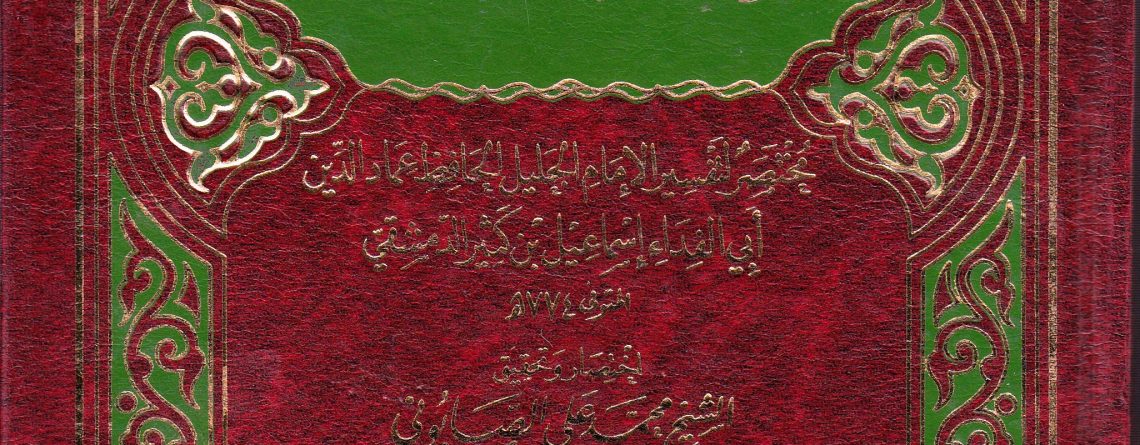 مُختصرٌ لتفسير الإمام الجليل الحافظ عماد الدين
أبي الفداء إسماعيل بن كثير الدمشقي
المتوفى ٧٧٤ هـ
اختصار وتحقيق
الشيخ محمد علي الصابوني